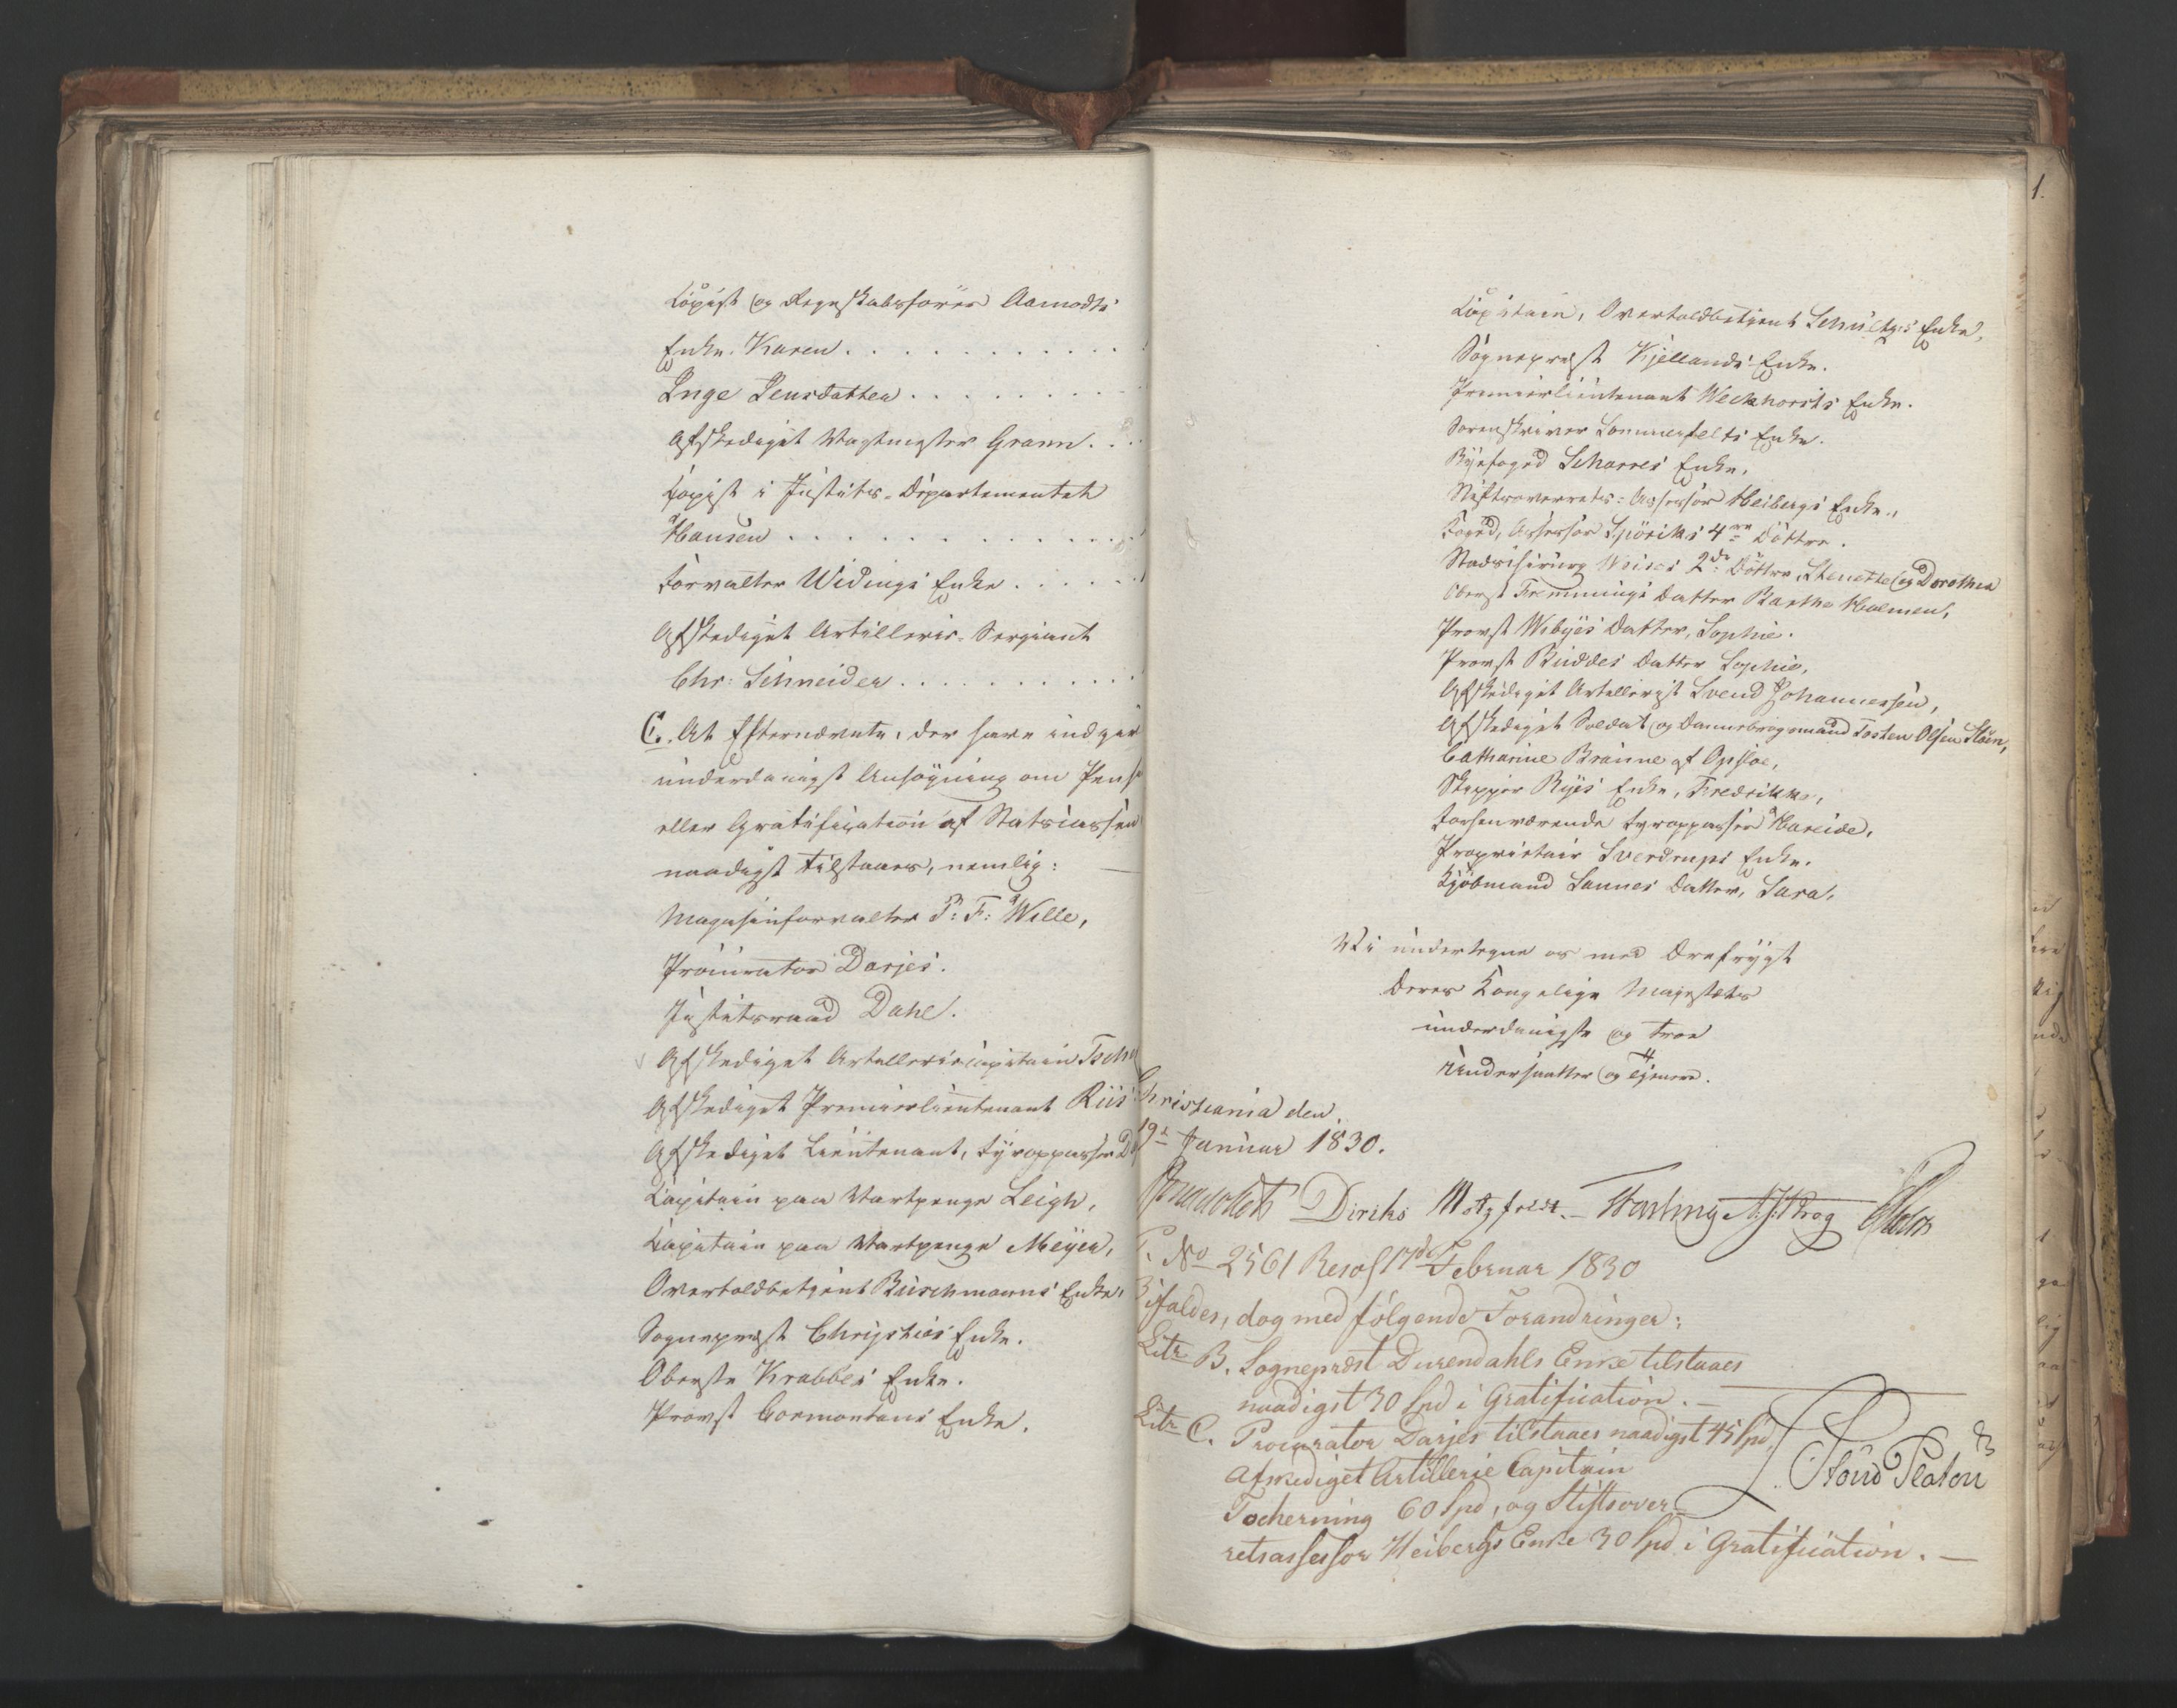 Copist og Regnskabsfører Aamodts
Enke, Karen . . . . . . . . . . .
Inge Jensdatter . . . . . . . .
Afskediget Vagtmester Gramn . . .
Copist i Justits-Departementet
Hansen . . . . . . . . . . . .
Forvalter Widings Enke . . . . .
Afskediget Artillerie-Sergeant
Chr: Schneider . . . . . . . . . .
C. At Efternævnte, der have indgivet
underdanigst Ansøgning om
eller Gratification af Statscassen
naadigst tilstaaes, nemlig: —
Magasinforvalter P: F: Wille,
Procurator Darjes.
Justitsraad Dahl.
Afskediget Artilleriecapitain
Afskediget Premierlieutenant Riis
Afskediget Lieutenant, Fyroppasser
Capitain paa Vartpenge Leigh,
Capitain paa Vartpenge Meyer,
Overtoldbetjent Buschmanns Enke,
Sognepræst Christies Enke.
Oberste Krabbes Enke.
Provst Cormontans Enke.
Capitain, Overtoldbetjent Schultzes Enke,
Sognepræst Kjellands Enke.
Premierlieutenant Weckhorsts Enke.
Sorenskriver Sommerfelts Enke.
Byefoged Scharres Enke,
Stiftsoverrets-Assessor Heibergs Enke,
Foged, Assessor Spörcks 4re Döttre.
Stadschirurg Weises 2de Döttre, Stenette og Dorothea
Oberst Fremmings Datter Barthe Holmen,
Provst Wibyes Datter, Sophie.
Provst Buddes Datter Sophie,
Afskediget Artillerist Svend Johannessen,
Afskediget Soldat og Dannebrogmand Tosten Olsen Støen,
Catharine Branne af Opsloe,
Skipper Ryes Enke, Fredrikke,
Forhenværende Fyroppasser Hareide,
Proprietair Sverdrups Enke.
Kjöbmand Sannes Datter, Sara,
Vi undertegne os med Ærefrygt
Deres Kongelige Majestæts
underdanigste og troe
Undersaatter og Tjenere.
Christiania den
19de Januar 1830.
Diriks Motzfeldt. Fasting
P. No 2561 Resol 17de Februar 1830
Bifaldes, dog med følgende Forandringer:
Litr B. Sognepræst Durendahls Enke tilstaaes
naadigst 30 Spd i Gratification. —
Litr C. Procurator Darjes tilstaaes naadigst 45 Spd,
Afskediget Artillerie Capitain
Tscherning 60 Spd, og Stiftsover-
retsassessor Heibergs Enke 30 Spd i Gratification. —
Stoud Platou